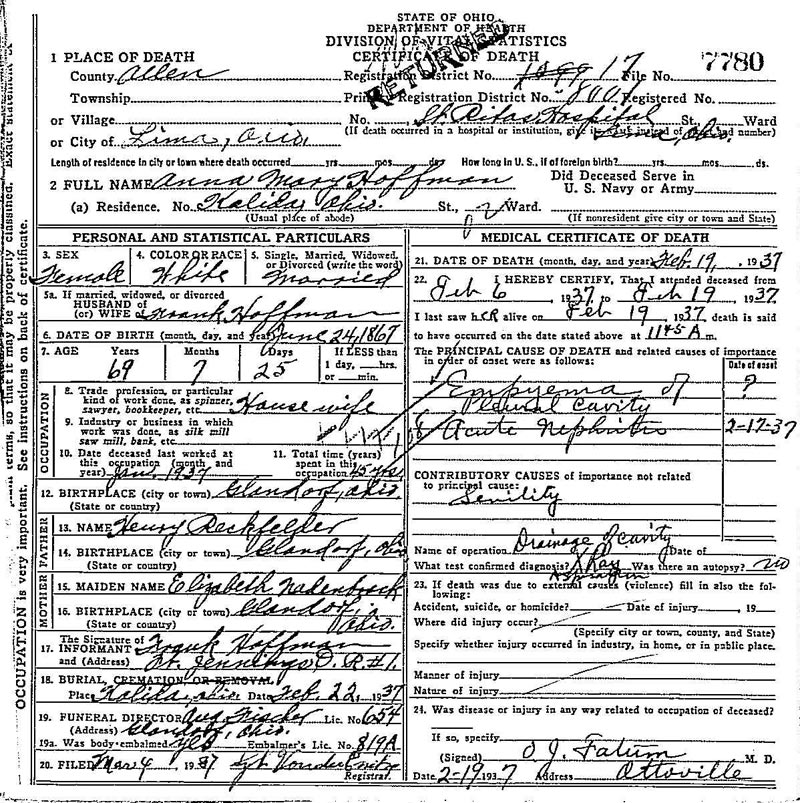 STATE OF OHIO
DEPARTMENT OF HEALTH
DIVISION OF VITAL STATISTICS
CERTIFICATE OF DEATH
RETURNED
7780
1 PLACE OF DEATH
County Allen
Registration District No. 17 File No.
Township
Primary Registration District No. 8001 Registered No.
or Village
No. St. Ritas Hospital St., Ward
or City of Lima, Ohio.
(If death occurred in a hospital or institution, give its name instead of street and number)
Lima, Ohio.
Length of residence in city or town where death occurred yrs. mos. ds. How long in U. S., if of foreign birth? yrs. mos. ds.
2 FULL NAME Anna Mary Hoffman
Did Deceased Serve in
U. S. Navy or Army
(a) Residence. No. Kalida Ohio. St., Ward.
(Usual place of abode) (If nonresident give city or town and State)
PERSONAL AND STATISTICAL PARTICULARS
3. SEX Female
4. COLOR OR RACE White
5. Single, Married, Widowed, or Divorced (write the word) Married
5a. If married, widowed, or divorced
HUSBAND of
(or) WIFE of Frank Hoffman
6. DATE OF BIRTH (month, day, and year) June 24, 1867
7. AGE Years Months Days If LESS than
69 7 25 1 day, hrs. or min.
OCCUPATION
8. Trade, profession, or particular
kind of work done, as spinner,
sawyer, bookkeeper, etc. House wife
9. Industry or business in which
work was done, as silk mill
saw mill, bank, etc.
10. Date deceased last worked at
this occupation (month and
year) Jan, 1937
11. Total time (years)
spent in this
occupation 45 yrs
12. BIRTHPLACE (city or town) Glandorf, Ohio.
(State or country)
FATHER
13. NAME Henry Reckfelder
14. BIRTHPLACE (city or town) Glandorf, Ohio
(State or country)
MOTHER
15. MAIDEN NAME Elizabeth
16. BIRTHPLACE (city or town) Glandorf,
(State or country) Ohio.
The Signature of
17. INFORMANT Frank Hoffman
and (Address) Ft. Jennings O. R#1.
18. BURIAL, CREMATION OR REMOVAL
Place Kalida, Ohio Date Feb. 22, 1937
19. FUNERAL DIRECTOR Aug Fischer Lic. No. 654
(Address) Glandorf, Ohio.
19a. Was body embalmed yes Embalmer's Lic. No. 819A
20. FILED Mar 4 1937
Registrar.
MEDICAL CERTIFICATE OF DEATH
21. DATE OF DEATH (month, day, and year) Feb. 19, 1937
22. I HEREBY CERTIFY, That I attended deceased from
Feb 6 1937, to Feb 19, 1937.
I last saw her alive on Feb 19, 1937, death is said
to have occurred on the date stated above at 1145 A m.
The PRINCIPAL CAUSE OF DEATH and related causes of importance
in order of onset were as follows:
Date of onset
Empyema of ?
Pleural Cavity
Acute Nephritis 2-17-37
CONTRIBUTORY CAUSES of importance not related
to principal cause:
Senility
Name of operation Drainage of cavity Date of
What test confirmed diagnosis? X Ray Was there an autopsy? no
Aspiration
23. If death was due to external causes (violence) fill in also the fol-
lowing:
Accident, suicide, or homicide? Date of injury , 19
Where did injury occur?
(Specify city or town, county, and State)
Specify whether injury occurred in industry, in home, or in public place.
Manner of injury
Nature of injury
24. Was disease or injury in any way related to occupation of deceased?
If so, specify
(Signed) O J. Fatum M. D.
Date 2-19 1937 Address Ottoville
OCCUPATION is very important. See instructions on back of certificate.
terms, so that it may be properly classified. Exact statement of